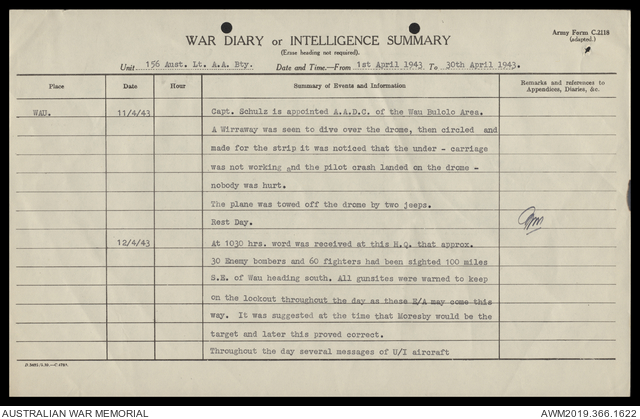 WAR DIARY or INTELLIGENCE SUMMARY
Army Form C.2118
(adapted.)
(Erase heading not required).
Unit 156 Aust. Lt. A.A. Bty. Date and Time.—From 1st April 1943 To 30th April 1943.
Place Date Hour Summary of Events and Information Remarks and references to Appendices, Diaries, &c.
WAU. 11/4/43 Capt. Schulz is appointed A.A.D.C. of the Wau Bulolo Area.
A Wirraway was seen to dive over the drome, then circled and
made for the strip it was noticed that the under - carriage
was not working and the pilot crash landed on the drome -
nobody was hurt.
The plane was towed off the drome by two jeeps.
Rest Day.
12/4/43 At 1030 hrs. word was received at this H.Q. that approx.
30 Enemy bombers and 60 fighters had been sighted 100 miles
S.E. of Wau heading south. All gunsites were warned to keep
on the lookout throughout the day as these E/A may come this
way. It was suggested at the time that Moresby would be the
target and later this proved correct.
Throughout the day several messages of U/I aircraft
AUSTRALIAN WAR MEMORIAL
AWM2019.366.1622